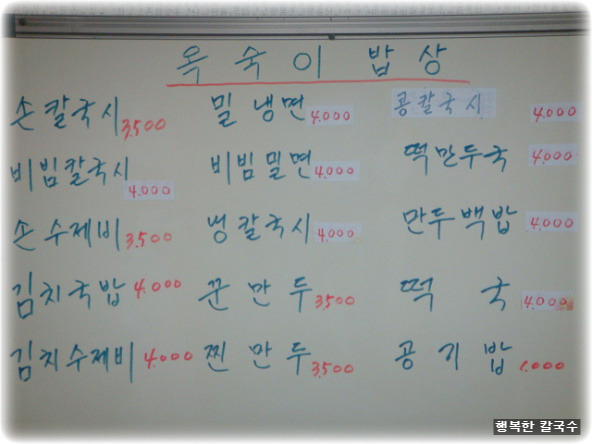 옥숙이 밥상
손칼국시 3,500 밀냉면 4.000 콩칼국시 4.000
비빔칼국시 4.000 비빔밀면 4.000 떡만두국 4.000
손수제비 3,500 냉칼국시 4.000 만두백밥 4.000
김치국밥 4.000 꾼만두 3,500 떡국 4.000
김치수제비 4.000 찐만두 3,500 공기밥 1.000
행복한 칼국수